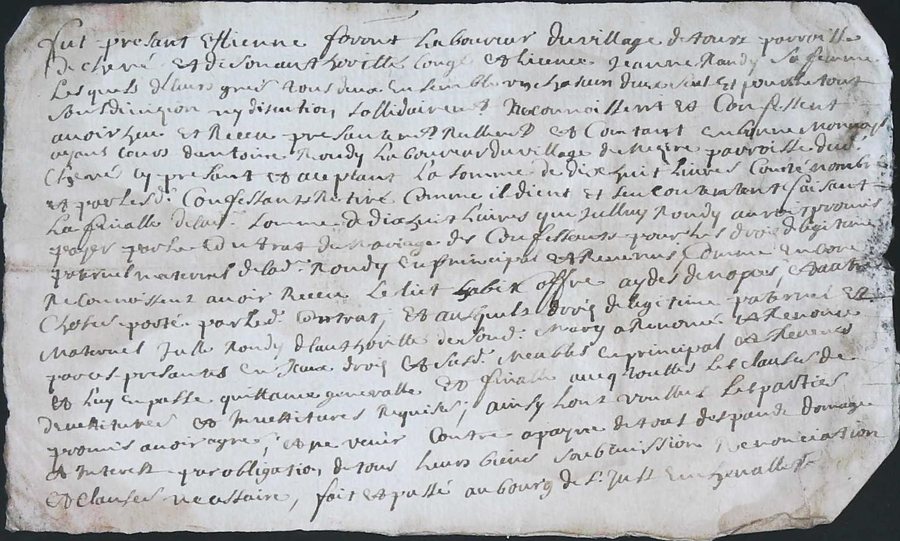 fut presant Estienne foront Laboureur du village de tours parroisse
De cheré et de son authorité congé et licence Jeanne Rondy sa femme
Lesquels de leurs grés tous deux ensemble un chascun deux seul et pour le tout
sans division ny discution sollidairement Reconnoissent et Confessent
avoir heu et Receu presantement Rellement et Contant en bonne Monoye
ayant cours dantoine Rondy Laboureur du village de parroisse dud.
Cheré cy presant et aceptant La somme de dix huit Livres Conté nombré
et par lesd. Confessants Retiré Comme il dient et sen contentent faisant
La finalle de lad. somme de dix huit Livres que Rondy auroit promis
payer par le Contrat de Mariage des Confessants pour les drois de legitime
paternel maternel de lad. Rondy en principal et Revenus Comme encore
Reconnoissent avoir Receu Le lict habit coffre aydes de nopces et autres
Choses porté par led. Contrat, et ausquels drois de legitime paternel et
Maternel Jalle Rondy de lauthorité de sond. Mary a Renoncé et Renonce
par ces presantes en Iceux drois et susd. Meubles en principal et Revenus
et luy en passe quittance generalle et finalle avecq touttes les clauses de
devettitures et Invettitures Requises, ainsy Lont voullu Les parties
promis avoir agreé, et ne venir Contre a payne de tout despands domage
et Interest par obligation de tous leurs biens soubmission Renonciation
et clauses necessaire, fait et passé au bourg de St. Just en chevallet